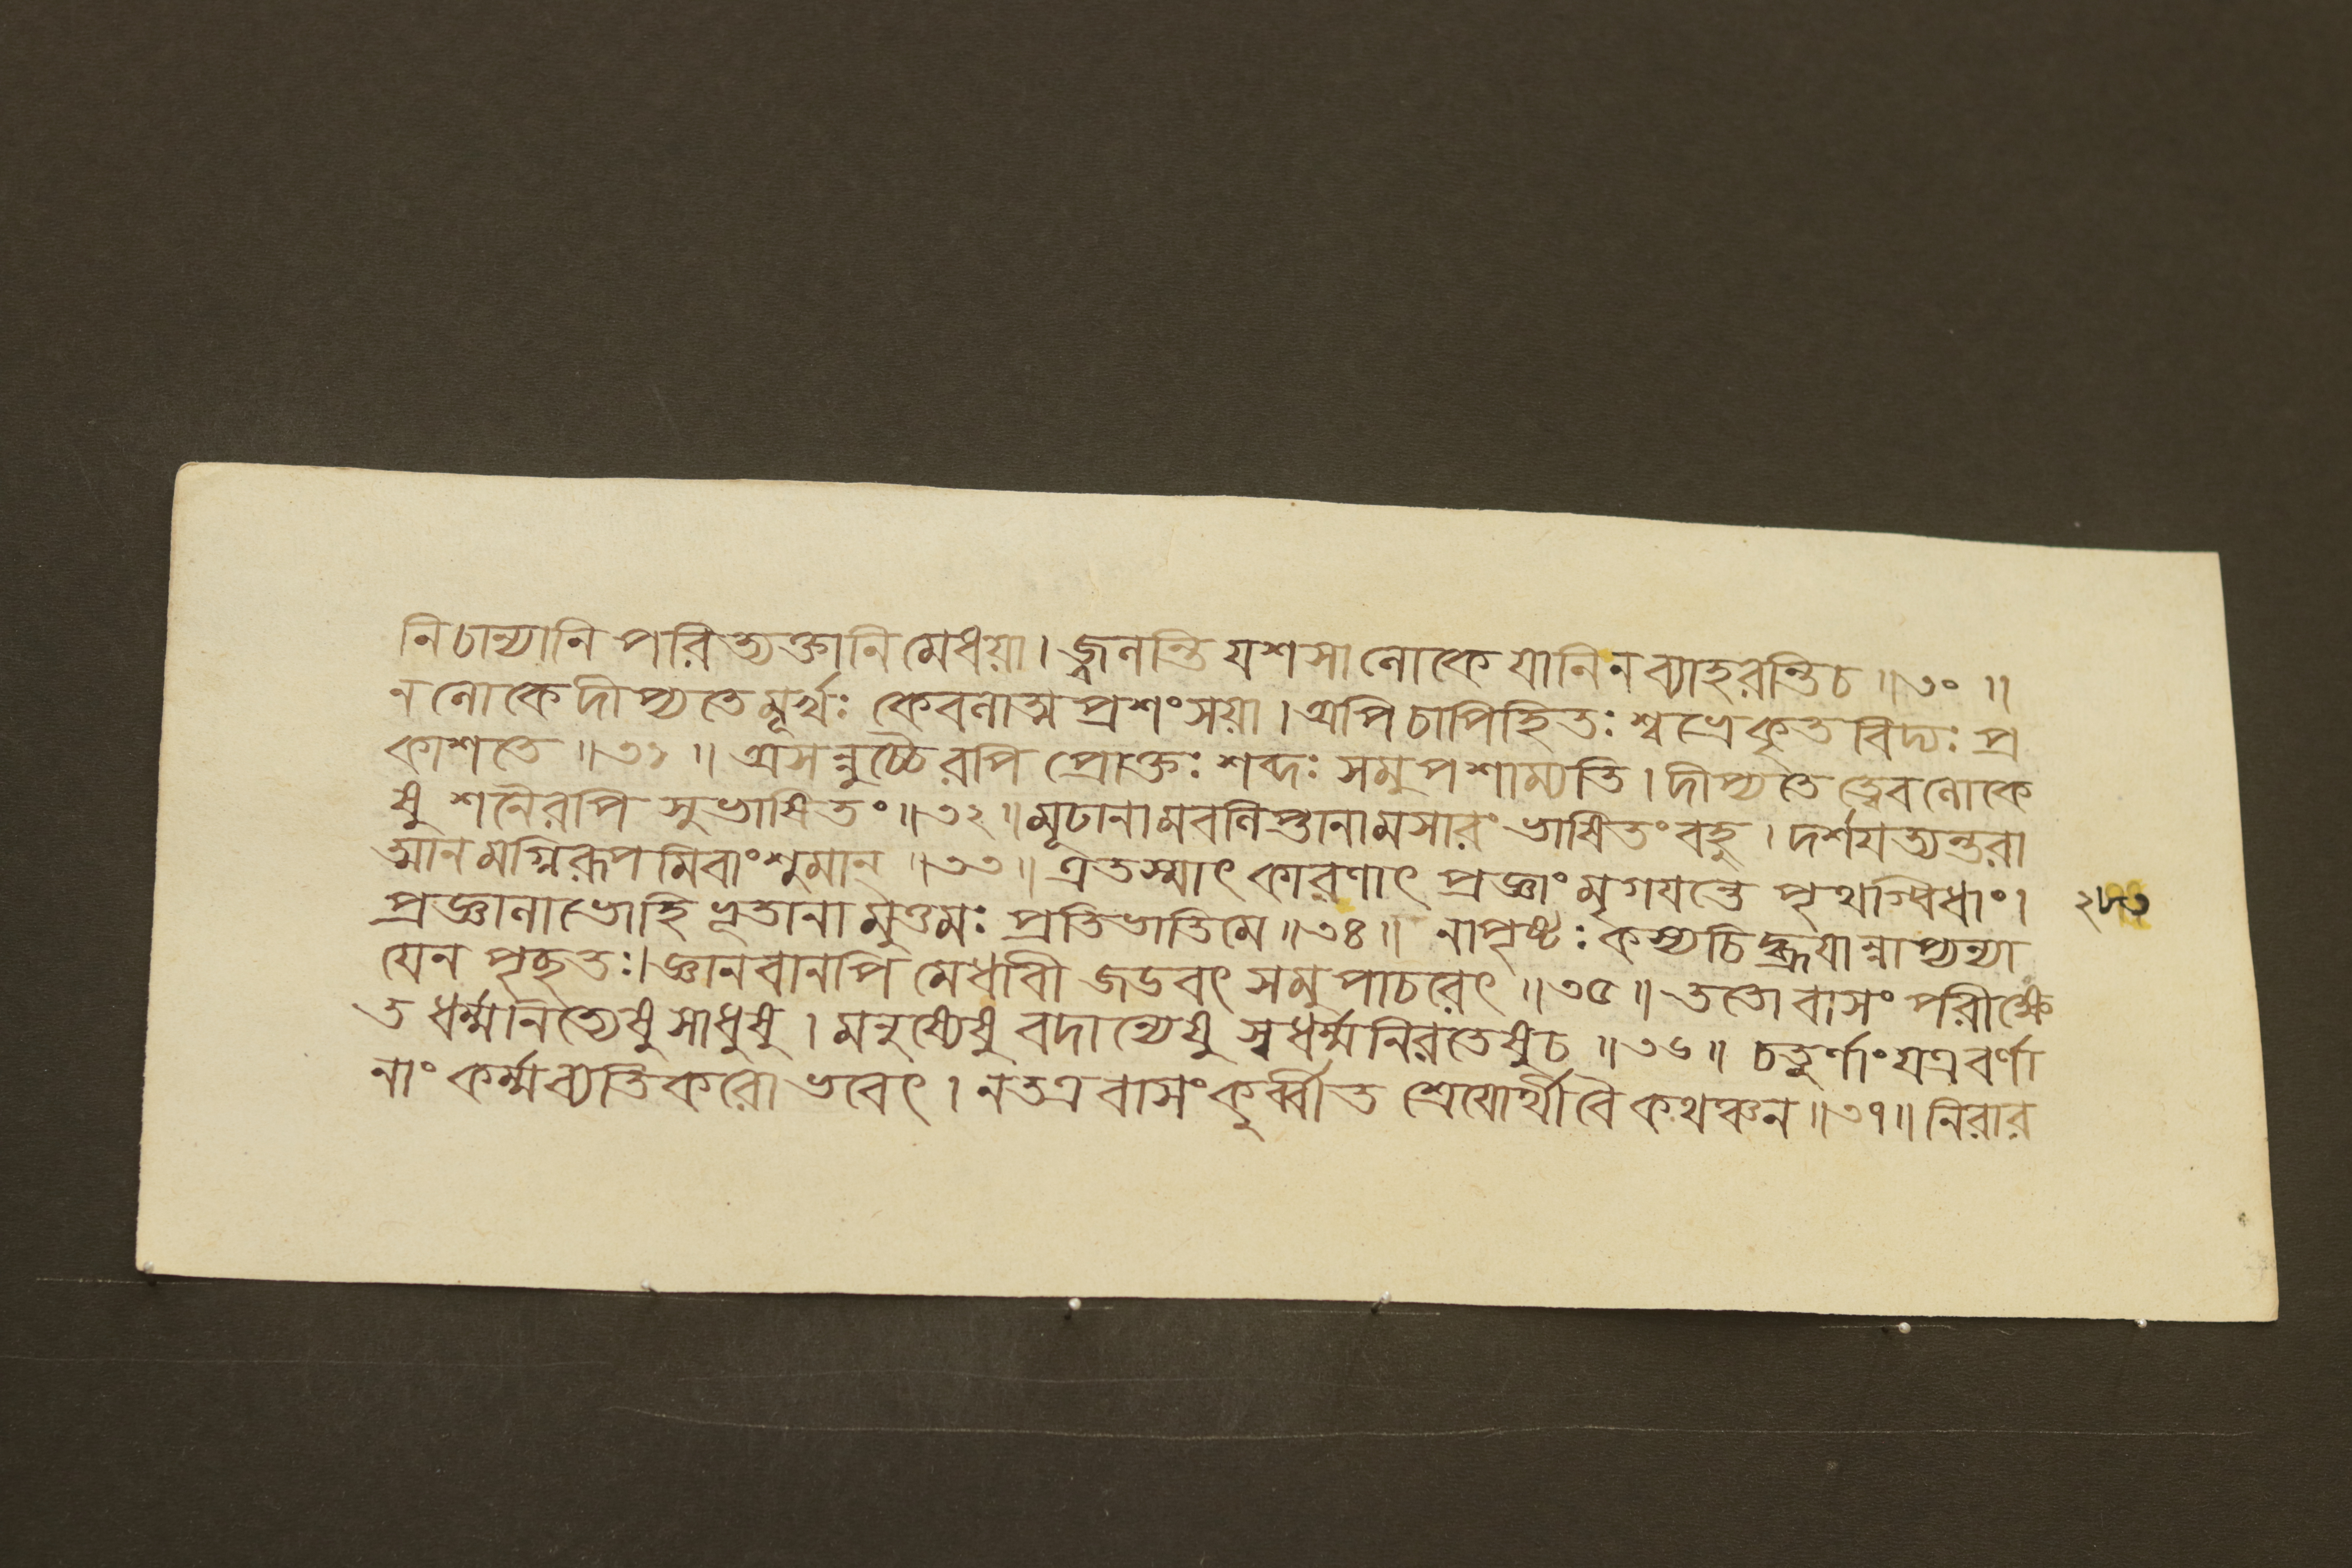 নিচান্যানি পরিত্যক্তানি মেধয়া। জ্বলন্তি যশসা লোকে যানি ন ব্যাহরন্তি চ ॥৩০॥
ন লোকে দীপ্যতে মূর্খঃ কেবলাত্ম প্রশংসয়া। অপি চাপিহিতঃ শ্বভ্রে কৃতবিদ্যঃ প্র
কাশতে ॥৩১॥ অসন্নুচ্চৈরপি প্রোক্তঃ শব্দঃ সমুপশাম্যতি। দীপ্যতে ত্বেব লোকে
ষু শনৈরপি সুভাষিতং ॥৩২॥ মূঢানামবলিপ্তানামসারং ভাষিতং বহু। দর্শযত্যন্তরা
ত্মানমগ্নিরূপমিবাংশুমান্ ॥৩৩॥ এতস্মাৎ কারণাৎ প্রজ্ঞাং মৃগযন্তে পৃথগ্বিধাং।
প্রজ্ঞালাভো হি ভূতানামুত্তমঃ প্রতিভাতি মে ॥৩৪॥ নাপৃষ্টঃ কস্যচিদ্ব্রূযান্নাপ্যন্যা
যেন পৃচ্ছতঃ। জ্ঞানবানপি মেধাবী জডবৎ সমুপাচরেৎ ॥৩৫॥ ততো বাসং পরীক্ষে
ত ধর্ম্মনিত্যেষু সাধুষু। মনুষ্যেষু বদান্যেষু স্বধর্ম্মনিরতেষু চ ॥৩৬॥ চতুর্ণাং যত্র বর্ণা
নাং কর্ম্মব্যতিকরো ভবেৎ। ন তত্র বাসং কুর্ব্বীত শ্রেযোর্থী বৈ কথঞ্চন ॥৩৭॥ নিরার